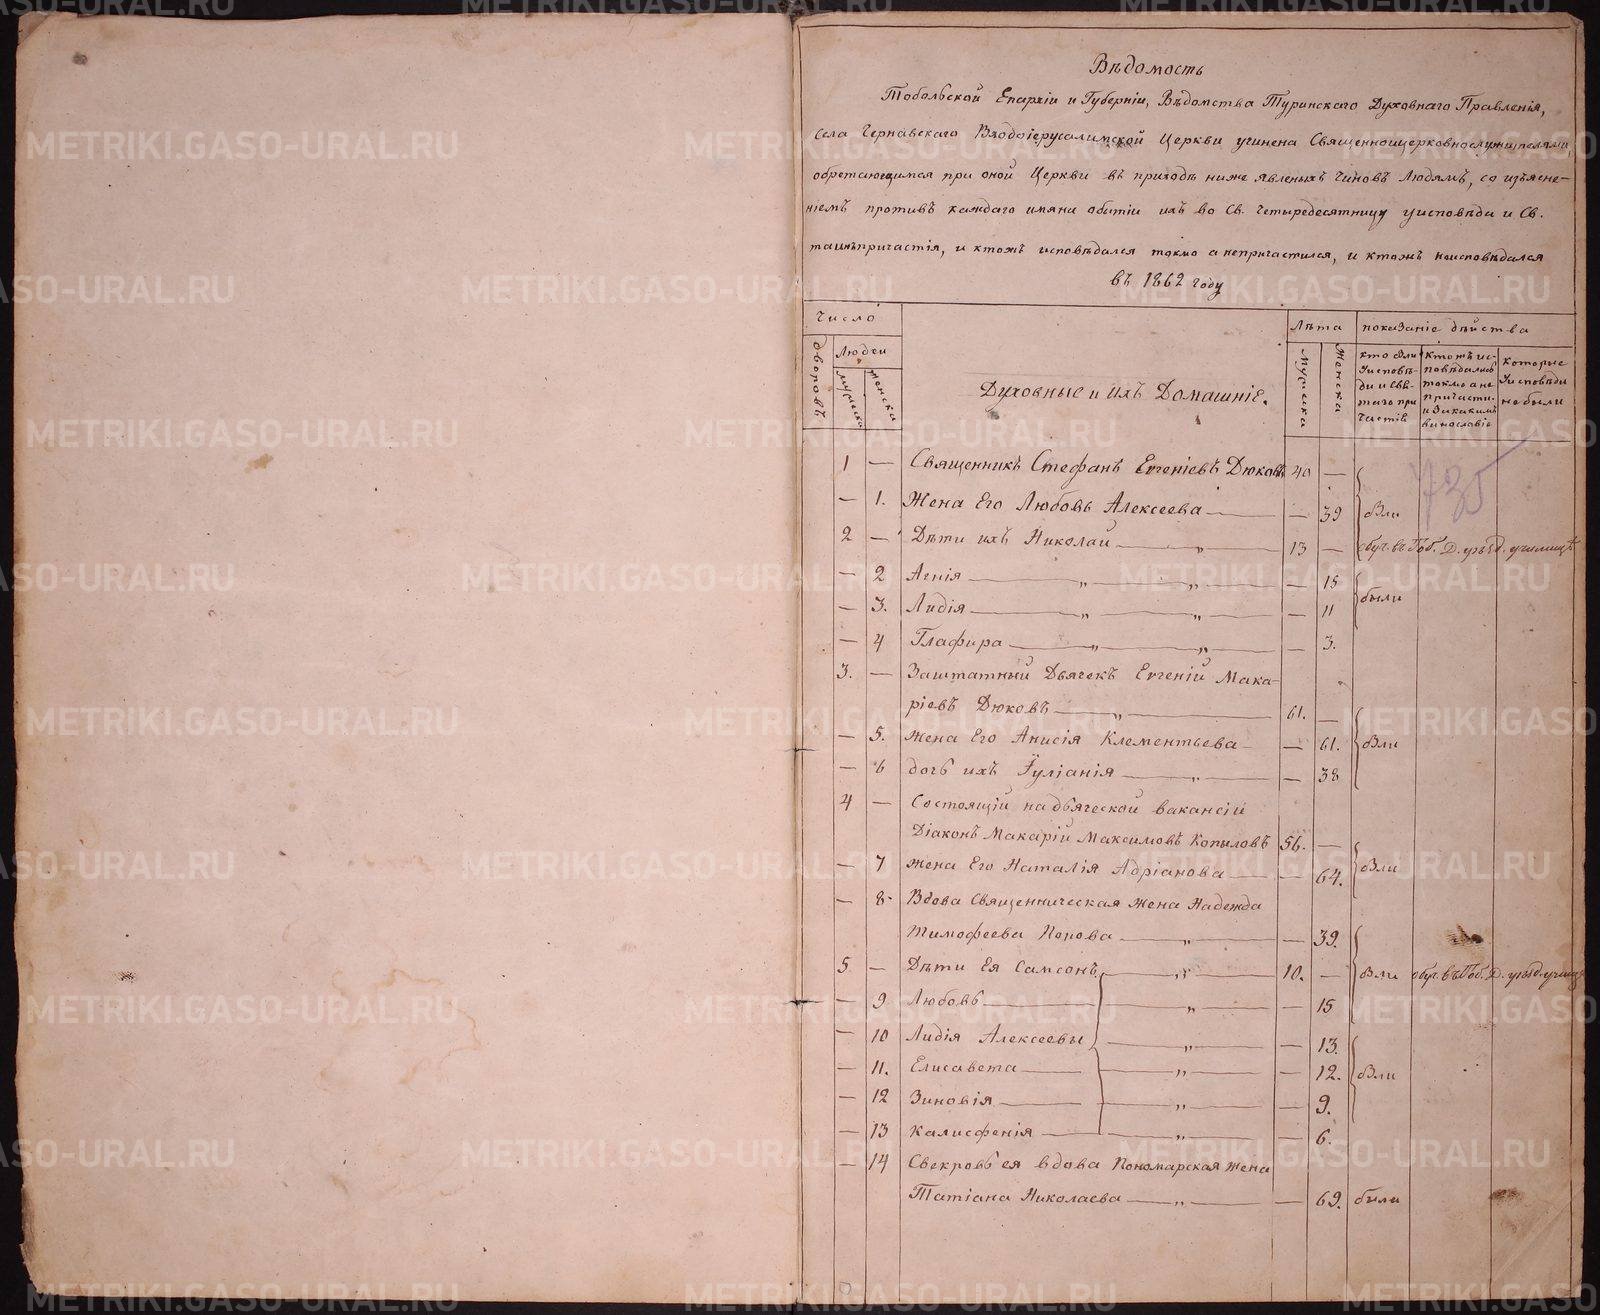 Вѣдомость
Тобольской Епархіи и Губерніи, Вѣдомства Туринскаго Духовнаго Правленія,
Села Чернавскаго Входоіерусалимской Церкви учинена Священноцерковнослужителями,
обретающимся при оной Церкви въ приходѣ ниже явленыхъ чиновъ Людямъ, со изъясне-
ніемъ противъ каждаго имяни обытіи ихъ во Св. Четыредесятницу уисповѣди и Св.
таинъпричастія, и ктожъ исповѣдался токмо а непричастился, и ктожъ неисповѣдался
въ 1862 году
Число
Лѣта
показаніе дѣйства
дворовъ
Людеи
мужеска
женска
Духовные и ихъ Домашніе.
Мужеска
Женска
кто были уисповѣди и свя-таго при частія
Ктожъ ис-повѣдались токмо а не причасти. и Закакимъ винословіе
которые уисповѣди небыли
735
1 — Священникъ Стефанъ Евгеніевъ Дюковъ 40 —
— 1. Жена Его Любовь Алексеева — 39 были
2 — Дѣти ихъ Николай „ 13 — обуч. въ Тоб. Д. уѣзд. училищѣ
— 2 Агнія „ „ — 15
— 3. Лидія „ „ — 11 были
— 4 Глафира „ „ — 3.
3. — Заштатный Дьячекъ Евгеній Мака-
ріевъ Дюковъ „ 61. —
— 5. Жена Его Анисія Клементьева — 61. были
— 6 дочь ихъ Іуліанія „ — 38
4 — Состоящій надьяческой вакансіи
Діаконъ Макарій Максимовъ Копыловъ 56. —
— 7 Жена Его Наталія Адріанова — 64. были
— 8. Вдова Священническая жена Надежда
Тимофеева Попова „ — 39.
5 — Дѣти Ея Самсонъ „ 10. — были обуч. въ Тоб. Д. уѣзд. училищ
— 9 Любовь „ — 15
— 10 Лидія Алексеевы „ — 13.
— 11. Елисавета „ — 12. были
— 12 Зиновія „ — 9.
— 13 Калисфенія „ — 6.
— 14 Свекровь ея вдова Пономарская жена
Татіана Николаева „ — 69. были
METRIKI.GASO-URAL.RU